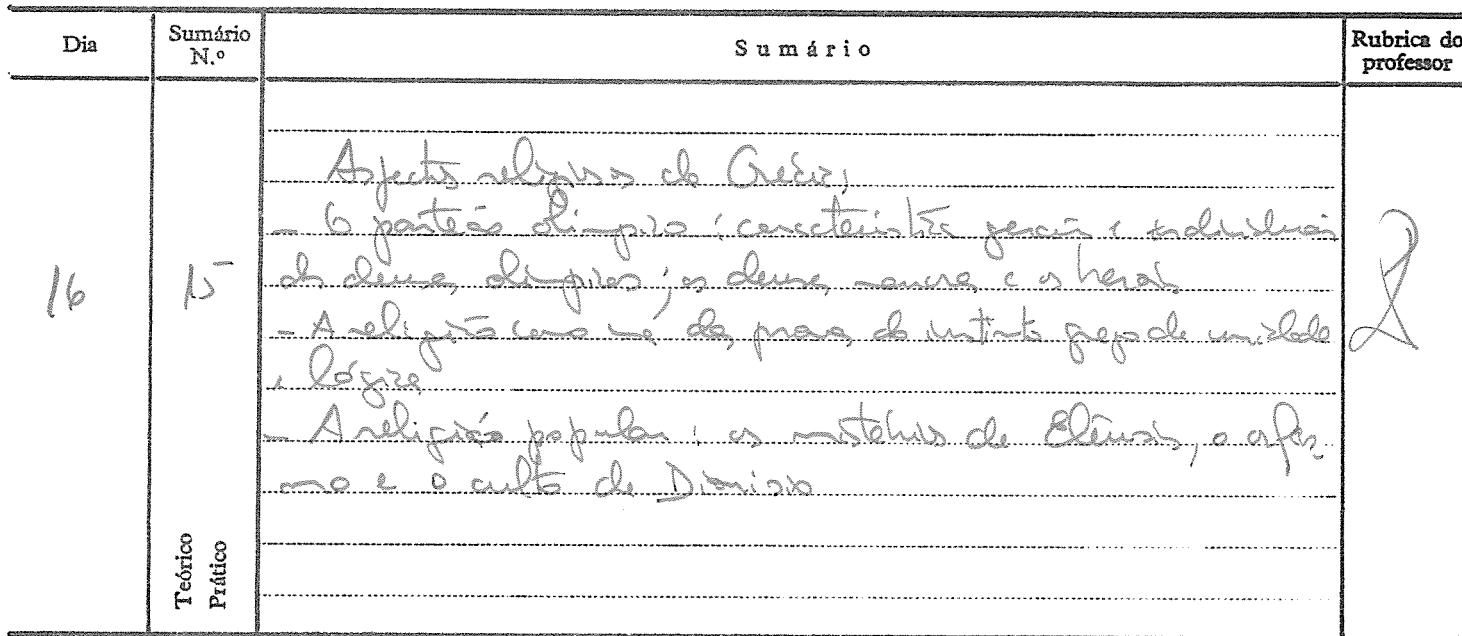 Dia
Sumário N.º
Sumário
Rubrica do professor
Aspectos religiosos da Grécia;
- O panteão olímpico: características gerais e individuais
16
15
dos deuses olímpicos; os deuses menores e os heróis
- A religião como uma das provas do instinto grego de unidade
e lógica
- A religião popular: os mistérios de Elêusis, o orfis
mo e o culto de Dioniso
Teórico
Prático